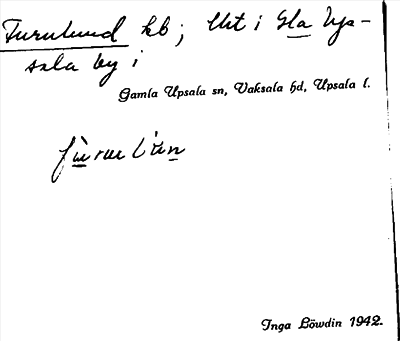 Furulund kb; Utt i Gla Up-
sala by i
Gamla Upsala sn, Vaksala hd, Upsala l.
Inga Löwdin 1942.